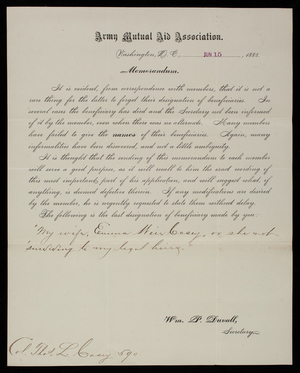 Army Mutual Aid Association.
Washington, D. C. JUN 15 , 188
Memorandum.
It is evident, from correspondence with members, that it is not a
rare thing for the latter to forget their designation of beneficiaries. In
several cases the beneficiary has died and the Secretary not been informed
of it by the member, even where there was an alternate. Many members
have failed to give the names of their beneficiaries. Again, many
informalities have been discovered, and not a little ambiguity.
It is thought that the sending of this memorandum to each member
will serve a good purpose, as it will recall to him the exact wording of
this most important part of his application, and will suggest what, if
anything, is deemed defective therein. If any modifications are desired
by the member, he is urgently requested to state them without delay.
The following is the last designation of beneficiary made by you:
"My wife, Emma Weir Casey, or she not
surviving to my legal heirs."
Wm. P. Duvall,
Secretary.
Col. Thos. L. Casey 590